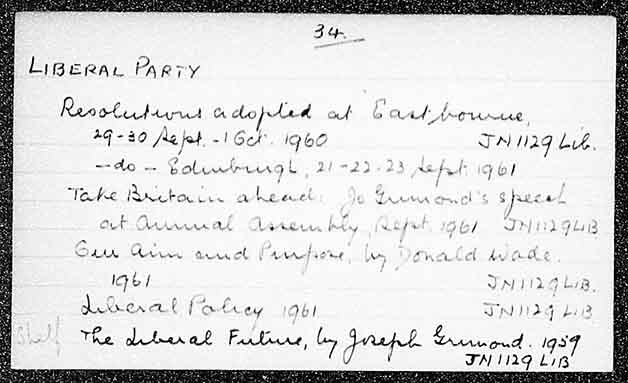 34.
LIBERAL PARTY
Resolutions adopted at Eastbourne,
29-30 Sept. - 1 Oct. 1960 JN1129 Lib.
- do - Edinburgh, 21-22-23 Sept 1961
Take Britain ahead: Jo Grimond's speech
at Annual Assembly, Sept. 1961 JN1129LIB
Our Aim and Purpose, by Donald Wade.
1961 JN1129LIB.
Liberal Policy 1961 JN1129 LIB
Shelf The Liberal Future, by Joseph Grimond. 1959
JN1129 LIB